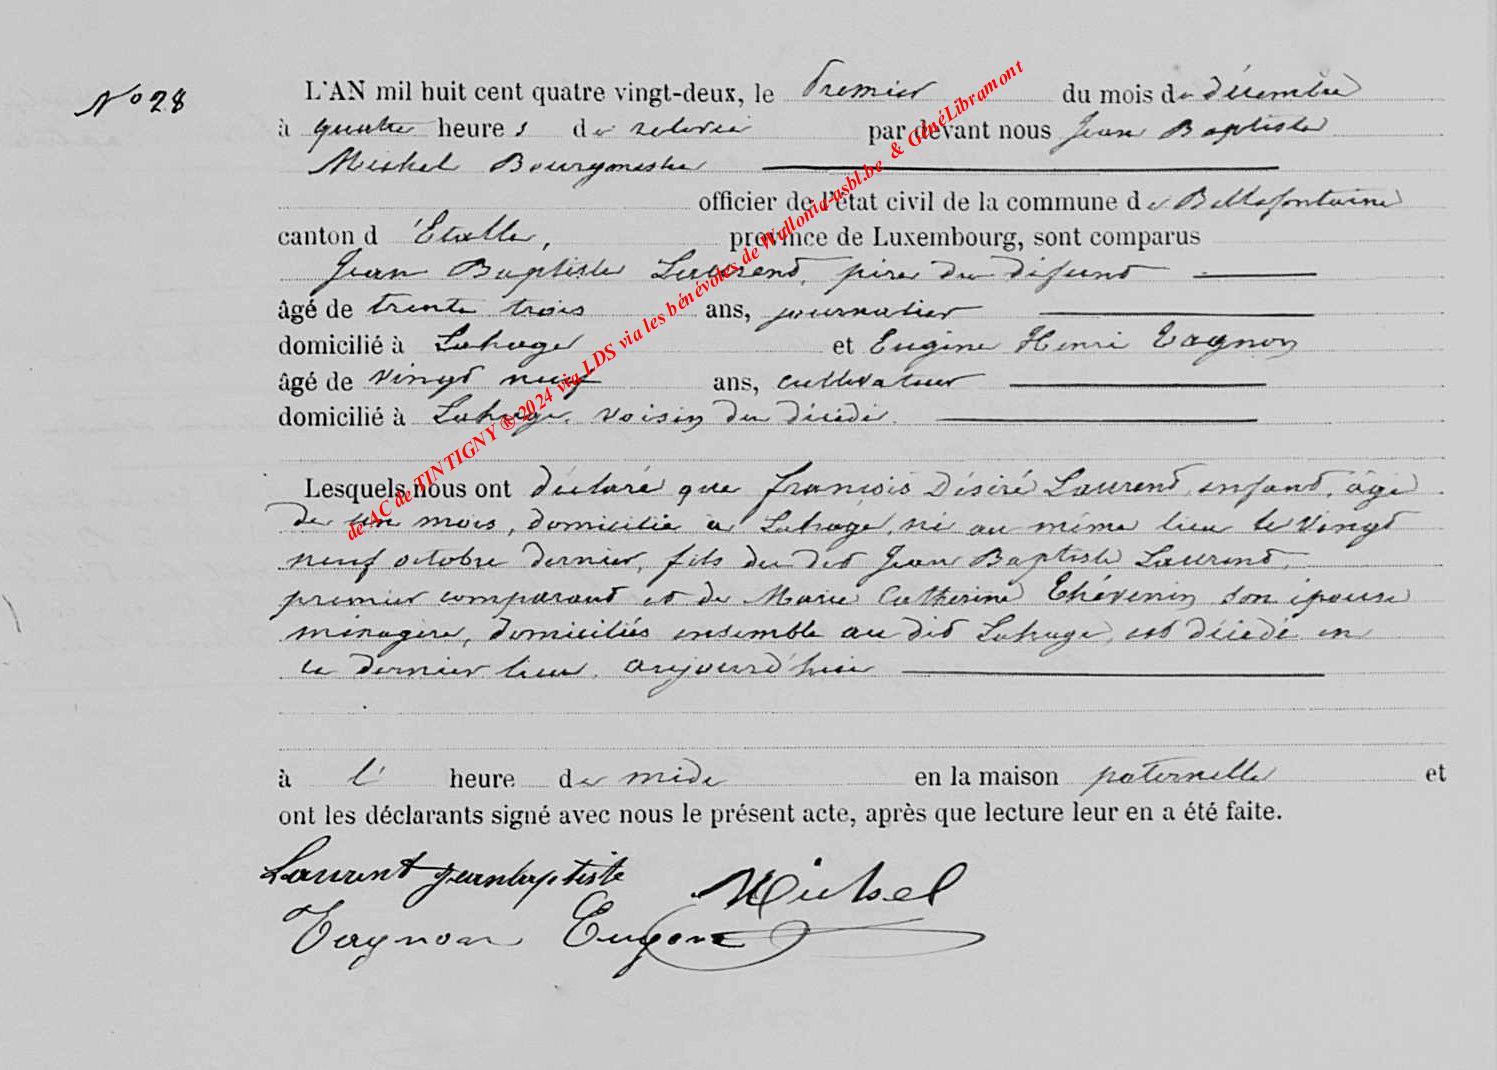 N° 28
L'AN mil huit cent quatre vingt-deux, le Premier du mois de décembre
à quatre heures de relevée par devant nous Jean Baptiste
Michel Bourgmestre
officier de l'état civil de la commune de Bellefontaine
canton d'Etalle, province de Luxembourg, sont comparus
Jean Baptiste Laurent, père du défunt
âgé de trente trois ans, journalier
domicilié à Lahage et Eugène Henri Tagnon
âgé de vingt neuf ans, cultivateur
domicilié à Lahage, voisin du décédé.
Lesquels nous ont déclaré que François Désiré Laurent, enfant, âgé
de un mois, domicilié à Lahage, né au même lieu le vingt
neuf octobre dernier, fils du dit Jean Baptiste Laurent,
premier comparant et de Marie Catherine Thévenin son épouse
ménagère, domiciliés ensemble au dit Lahage, est décédé en
ce dernier lieu, aujourd'hui
à l' heure de midi en la maison paternelle et
ont les déclarants signé avec nous le présent acte, après que lecture leur en a été faite.
Laurent jeanbaptiste
Michel
Tagnon Eugène
de AC de TINTIGNY ® 2024 via LDS via les bénévoles de Wallonia-asbl.be & GénéLibramont